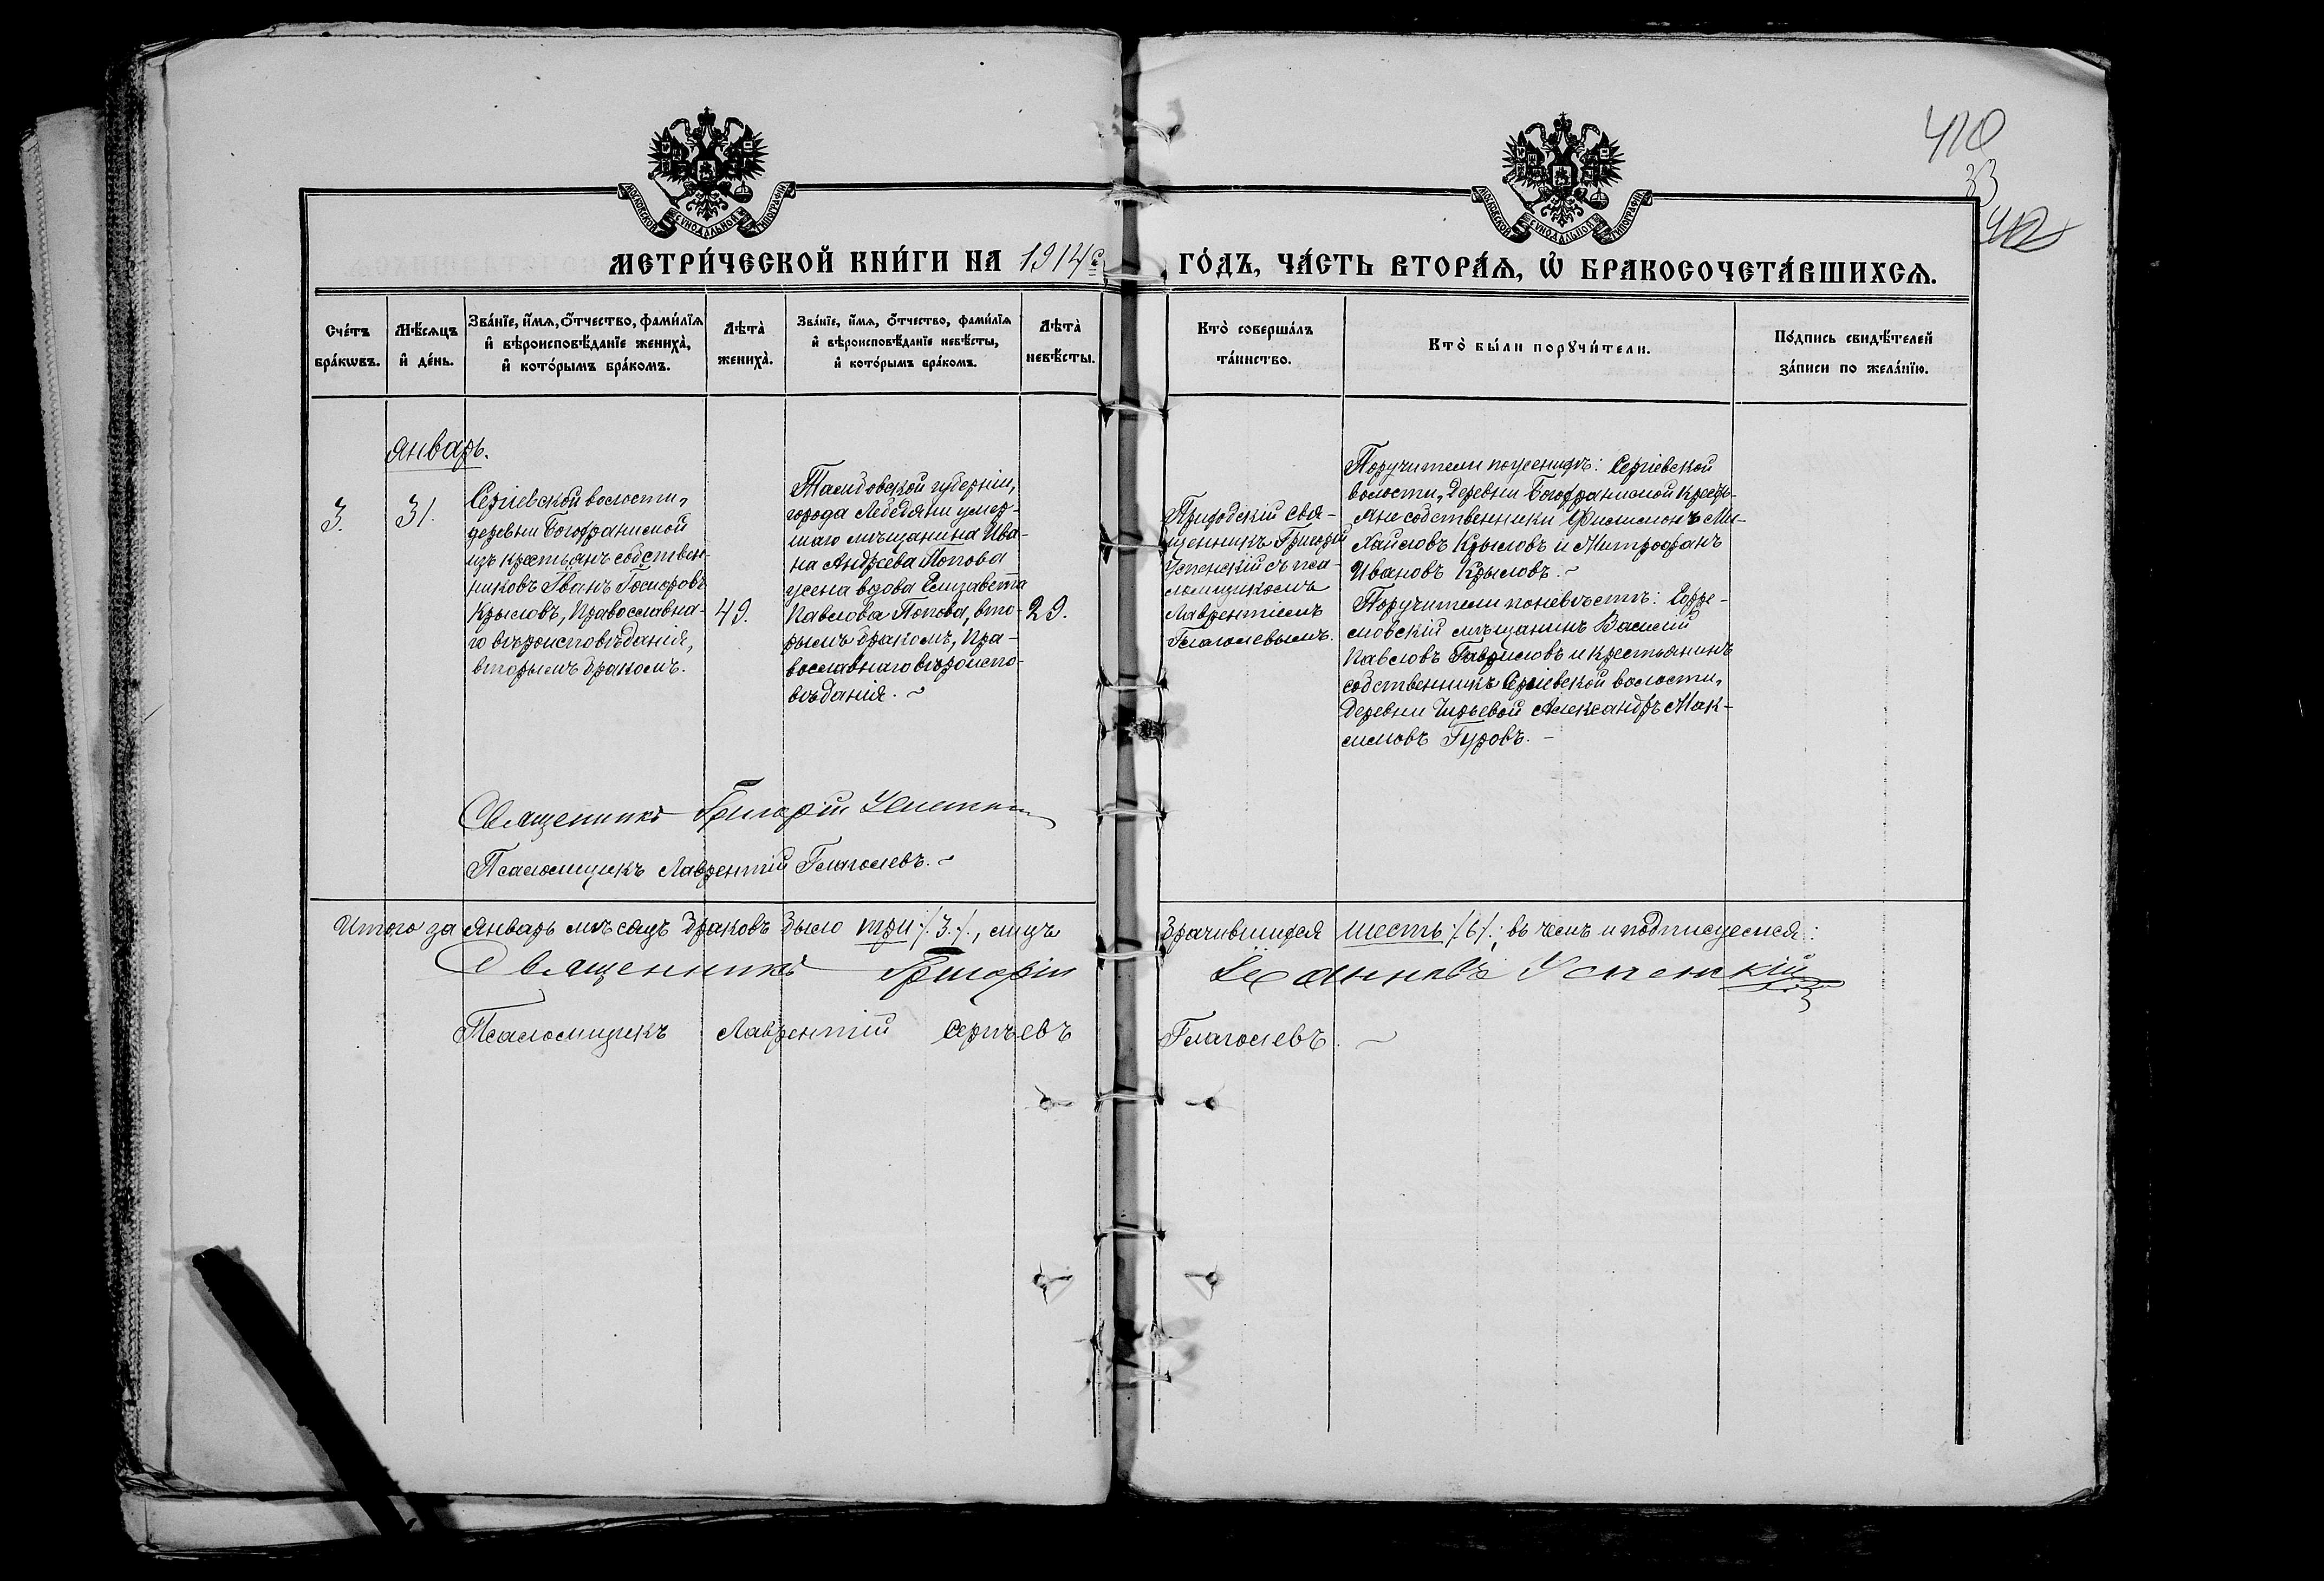 410
33
МОСКОВСКОЙ СѴНОДАЛЬНОЙ ТИПОГРАФІИ
МОСКОВСКОЙ СѴНОДАЛЬНОЙ ТИПОГРАФІИ
МЕТРИ́ЧЕСКОЙ КНИ́ГИ НА 1914 г. ГО́ДЪ, ЧА́СТЬ ВТОРА́Ѧ, Ѽ БРАКОСОЧЕТА́ВШИХСѦ.
Сче́тъ
бра́кѡвъ.
Мѣ́сѧцъ
и҆ де́нь.
Зва́нїе, и҆́мѧ, ѻ҆́тчество, фами́лїѧ
и҆ вѣроисповѣ́данїе жениха̀,
и҆ кото́рымъ бра́комъ.
Лѣта̀
жениха̀.
Зва́нїе, и҆́мѧ, ѻ҆́тчество, фами́лїѧ
и҆ вѣроисповѣ́данїе невѣ́сты,
и҆ кото́рымъ бра́комъ.
Лѣта̀
невѣ́сты.
Кто̀ соверша́лъ
та́инство.
Кто̀ бы́ли порꙋчи́тели.
По́дпись свидѣ́телей
за́писи по жела́нїю.
Январь.
3.
31.
Сергіевской волости,
деревни Богохранимой
изъ крестьянъ собствен-
никовъ Іванъ
Крыловъ, Православна-
го вѣроисповѣданія,
вторымъ бракомъ.
49.
Тамбовской губерніи,
города Лебедяни умер-
шаго мѣщанина Ива-
на Андреева Попова
жена вдова Елизавета
Павлова Попова, вто-
рымъ бракомъ, Пра-
вославнаго вѣроиспо-
вѣданія.
29.
Приходскій свя-
щенникъ Григорій
Успенскій съ пса-
ломщикомъ
Лаврентіемъ
Глаголевымъ.
Поручители по женихѣ: Сергіевской
волости, Деревни Богохранимой кресть-
яне собственники Филимонъ Ми-
хайловъ Крыловъ и Митрофанъ
Ивановъ Крыловъ.
Поручители по невѣстѣ: Ефре-
мовскій мѣщанинъ Василій
Павловъ Гавриловъ и крестьянинъ
собственникъ Сергіевской волости,
Деревни Александръ Мак-
симовъ Гуровъ.
Священникъ Григорій Успенскій
Псаломщикъ Лаврентій Глаголевъ.
Итого за Январь мѣсяцъ браковъ было три /.3./, лицъ брачившихся шесть /.6./; въ чемъ и подписуемся:
Священникъ Григорій Іоанновъ Успенскій
Псаломщикъ Лаврентій Сергѣевъ Глаголевъ.